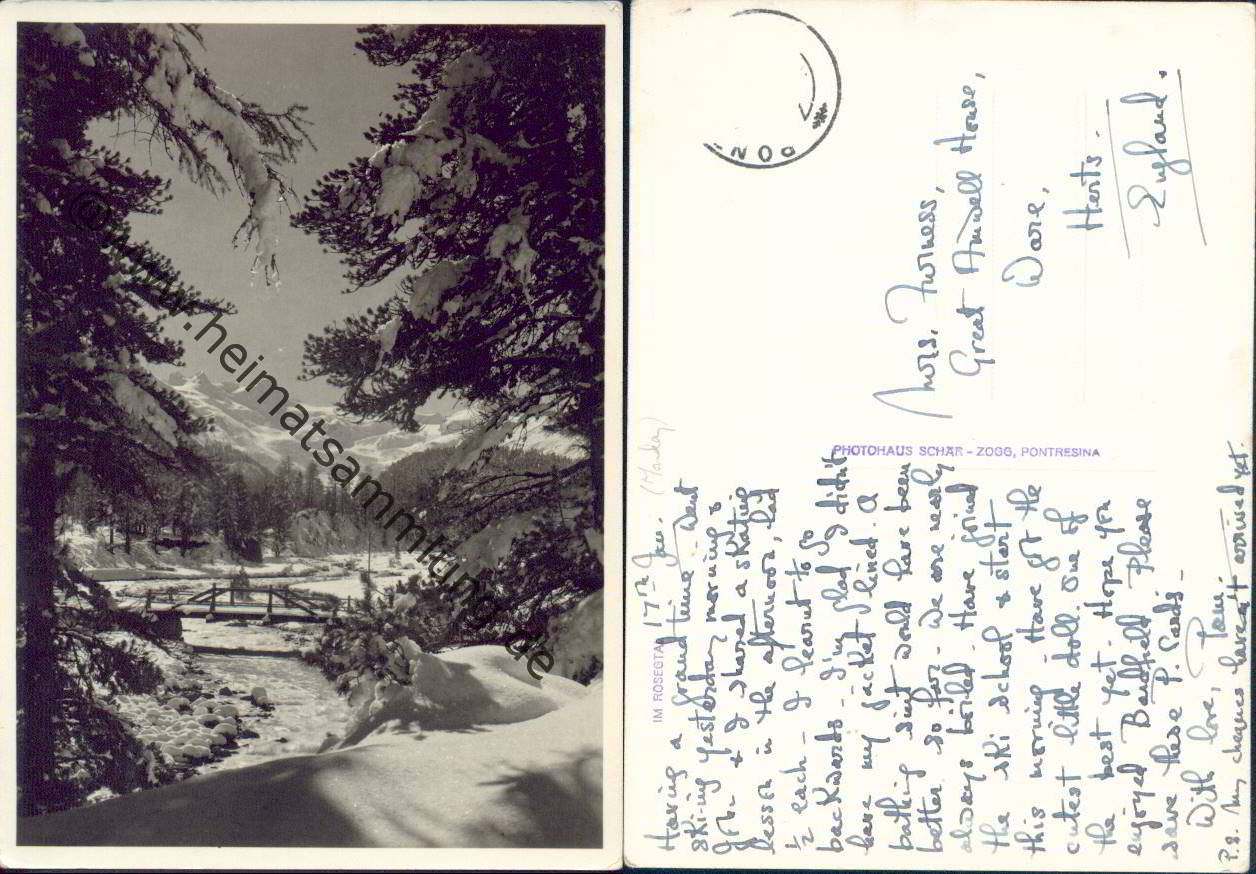 www.heimatsammlung.de
IM ROSEGTAL
17th Jan. (Monday)
Having a grand time. Went
ski-ing yesterday morning &
John & I shared a skating
lesson in the afternoon, had
½ each - I learnt to go
backwards - I'm glad I didn't
have my jacket lined. A
bathing suit would have been
better so far - We are nearly
always boiled - Have joined
the ski school & start
this morning - Have got the
cutest little doll. One of
the best yet. Hope you
enjoyed Bardfield. Please
save these P. Cards -
With love,
P.S. My cheques haven't arrived yet.
PHOTOHAUS SCHÄR - ZOGG, PONTRESINA
Mrs. Furness,
Great Amwell House,
Ware,
Herts.
England.